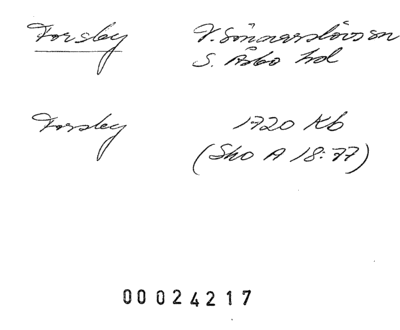 Forsby V. Sönnarslövs sn
S. Åsbo hd
Forsby 1720 Kb
(Sko A 18:77)
00024217